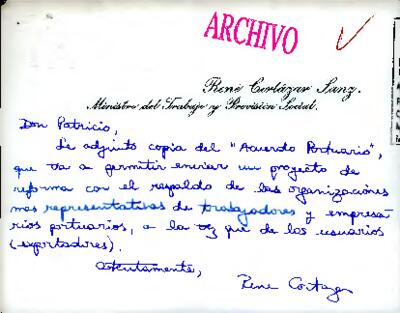 ARCHIVO
René Cortázar Sanz.
Ministro del Trabajo y Previsión Social.
Don Patricio,
Le adjunto copia del "Acuerdo Portuario",
que va a permitir enviar un proyecto de
reforma con el respaldo de las organizaciones
mas representativas de trabajadores y empresa
rios portuarios, a la vez que de los usuarios
(exportadores).
Atentamente,
Rene Cortazar